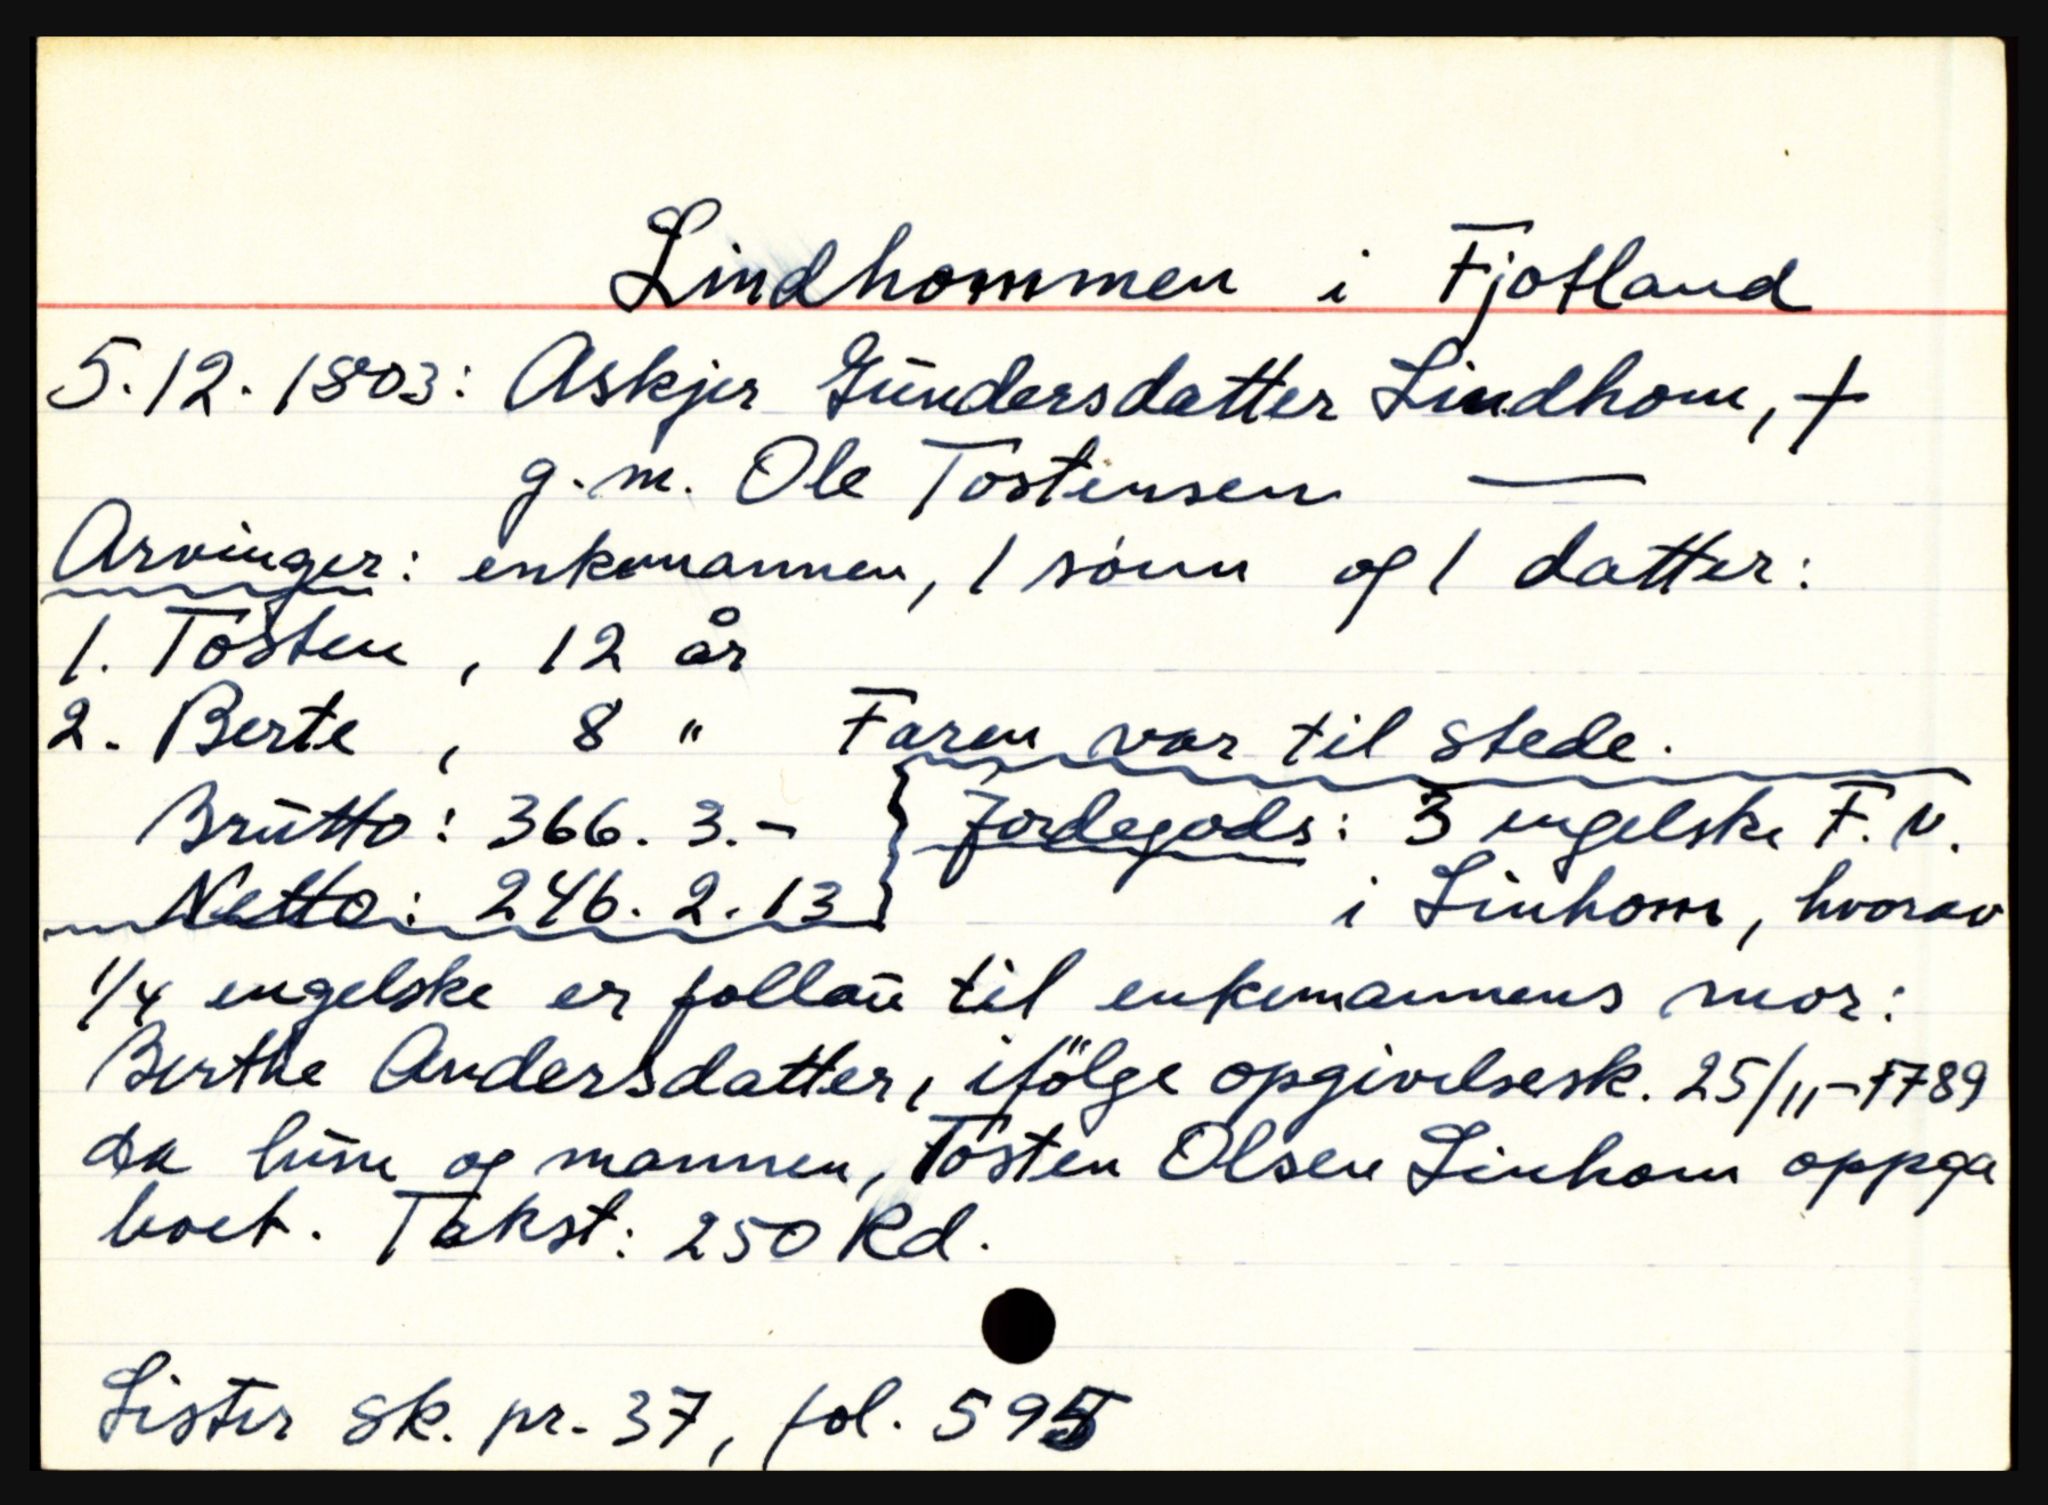 Lindhommen i Fjotland
5.12.1803: Askjer Gundersdatter Lindhom, †
g.m. Ole Tostensen —
Arvinger: enkemannen, 1 sønn og 1 datter:
1. Tosten, 12 år
2. Berte, 8 " Faren var til stede.
Brutto: 366.3.- } Jordegods: 3 engelske F.V.
Netto: 246.2.13 } i Linhom, hvorav
1/4 engelske er follau til enkemannens mor:
Berthe Andersdatter, ifölge opgivelsesk. 25/11-1789
da hun og mannen, Tosten Olsen Linhom oppga
boet. Takst: 250 Rd.
Lister sk. pr. 37, fol. 595